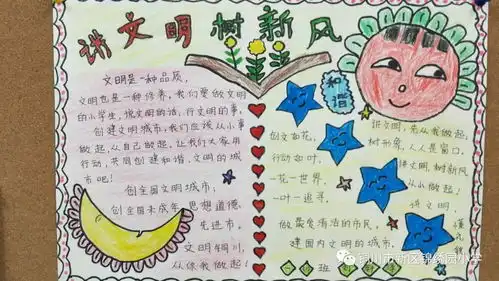 讲文明树新风
文明是一种品质,
文明也是一种修养,我们要做文明
的小学生,说文明的话,行文明的事,
创建文明城市,我们应该从小事
做起,从自己做起,让我们大家用
行动,共同创建和谐,文明的城
市吧!
创全国文明城市,
创全国未成年,思想道德,
先进市。
文明铜川,
从你我做起!
和谐
创文如花,
行动如叶,
一花一世界,
一叶一追寻。
做最爱清洁的市民,
建国内文明的城市。
讲文明,要从我做起,
树形象,人人是窗口,
讲文明,树新风
从小做起!
讲文明,
铜川市新区锦绣园小学